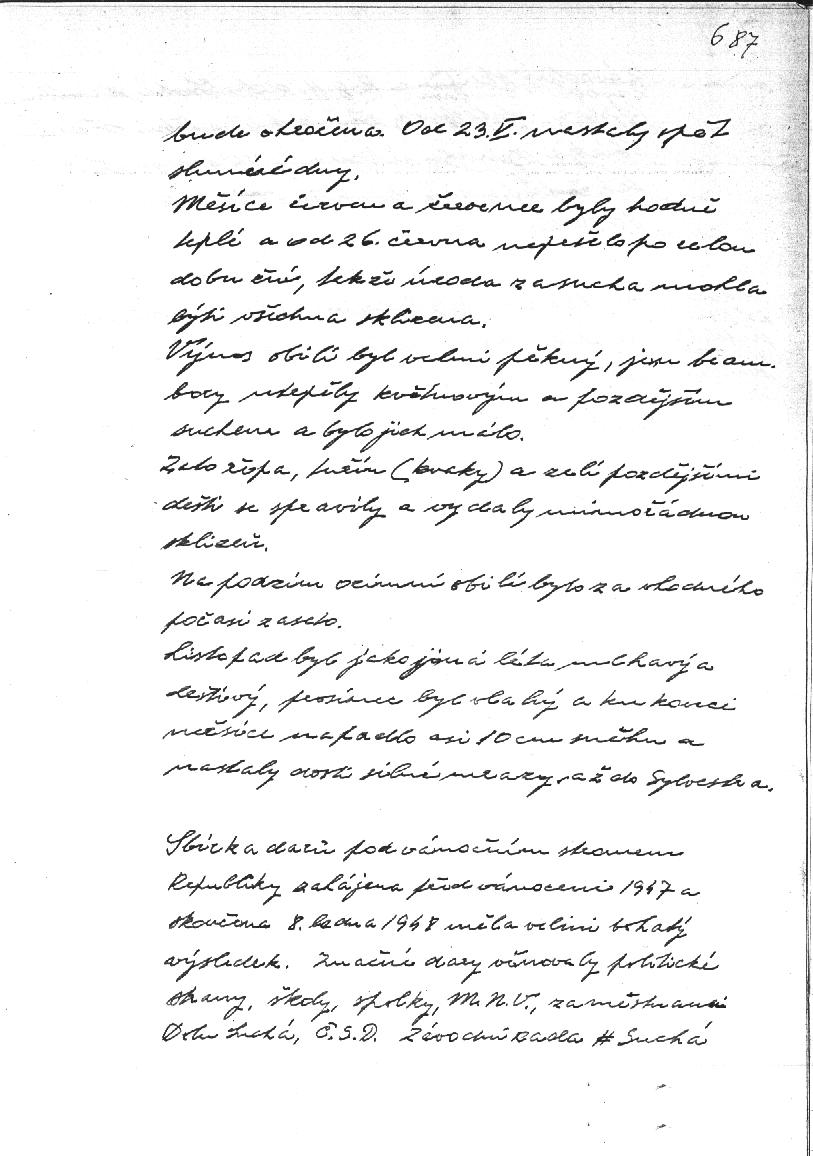 687
bude otočena. Od 23.V. nastaly zpět
slunečné dny.
Měsíce červen a červenec byly hodně
teplé a od 26. června nepršelo po celou
dobu žní, takže úroda za sucha mohla
býti všechna sklizena.
Výnos obilí byl velmi pěkný, jen bram-
bory utrpěly květnovým a pozdějším
suchem a bylo jich málo.
Zato řepa, tuřín (kvaky) a zelí pozdějšími
dešti se spravily a vydaly mimořádnou
sklizeň.
Na podzim ozimní obilí bylo za vhodného
počasí zaseto.
Listopad byl jako jiná léta mlhavý a
deštivý, prosinec byl vlahý a ku konci
měsíce napadlo asi 10 cm sněhu a
nastaly dosti silné mrazy, až do Sylvestra.
Sbírka darů pod vánočním stromem
Republiky zahájena před vánocemi 1947 a
skončena 8. ledna 1948 měla velmi bohatý
výsledek. Značné dary věnovaly politické
strany, školy, spolky, M.N.V., zaměstnanci
Dolu Suchá, Č.S.D. Závodní rada # Suchá